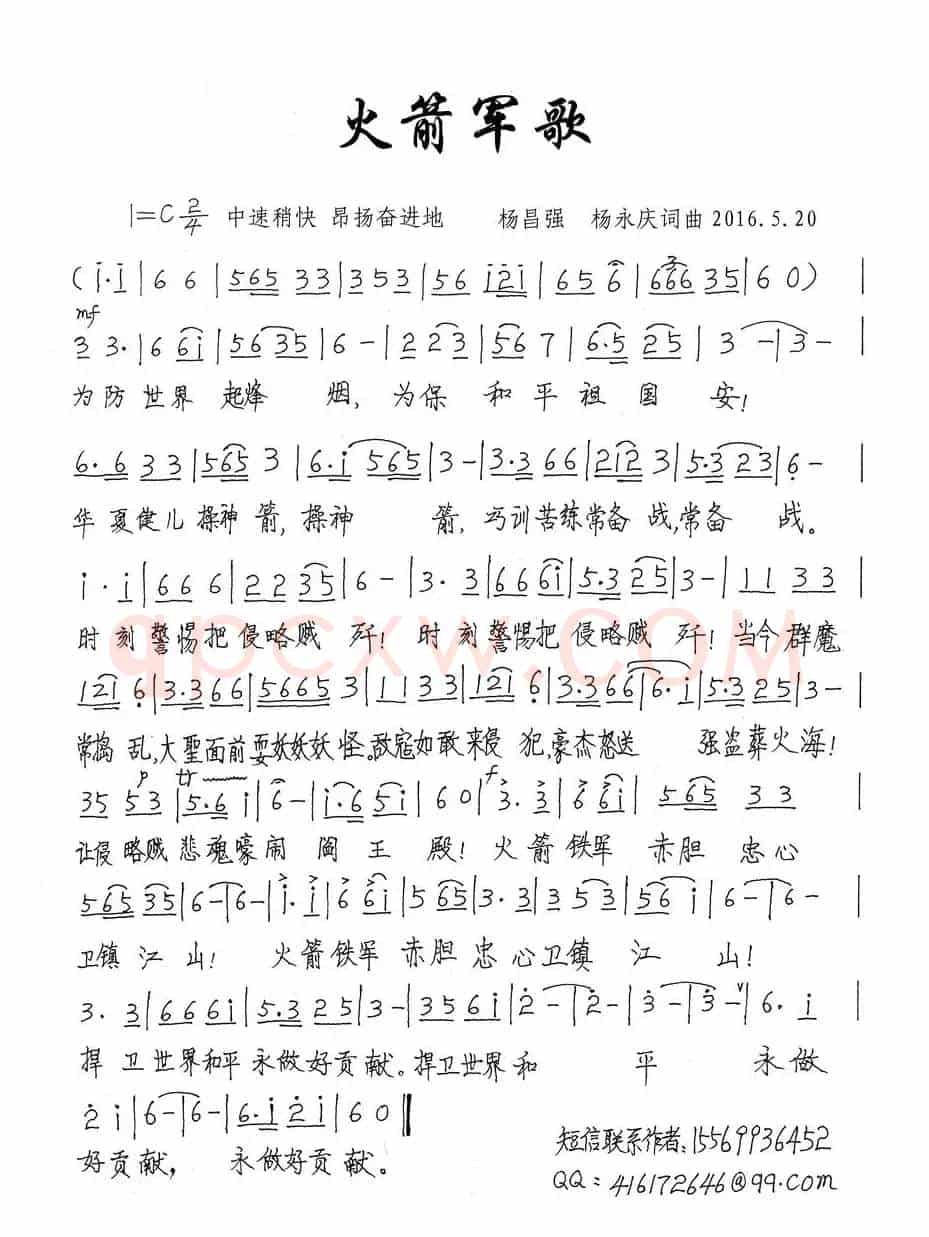 火箭军歌
1=C 2/4 中速稍快 昂扬奋进地 杨昌强 杨永庆词曲 2016.5.20
(i·i|6 6|565 33|353|56 i2i|65 6|666 35|6 0)|
mf
3 3·|6 6i|56 35|6-|2 23|56 7|6·5 25|3-|3-|
为防世界起烽烟,为保和平祖国安!
6·6 33|565 3|6·i 565|3-|3·3 66|212 3|5·3 23|6-|
华夏健儿操神箭,操神箭,巧训苦练常备战,常备战。
i·i|66 6|22 35|6-|3·3|66 6i|5·3 25|3-|11 33|
时刻警惕把侵略贼歼!时刻警惕把侵略贼歼!当今群魔
121 6|3·3 66|5665 3|11 33|121 6|3·3 66|6·i|5·3 25|3-|
常捣乱,大圣面前耍妖妖妖怪。敌寇如敢来侵犯,豪杰怒送强盗葬火海!
p tr f
35 53|5·6 i|6-|i·6 5i|6 0|3·3|6 6i|565 33|
让侵略贼悲魂嚎闹阎王殿!火箭铁军赤胆忠心
565 35|6-|6-|i·i|6 6i|5 565|3·3|3 53|56 i|6-|6-|
卫镇江山!火箭铁军赤胆忠心卫镇江山!
3·3|66 6i|5·3 25|3-|35 6i|2-|2-|3-|3-|6·i|
捍卫世界和平永做好贡献。捍卫世界和平永做
2 i|6-|6-|6·i 2i|6 0‖
好贡献,永做好贡献。
短信联系作者:15569936452
QQ:416172646@qq.com
qpcxw.COM